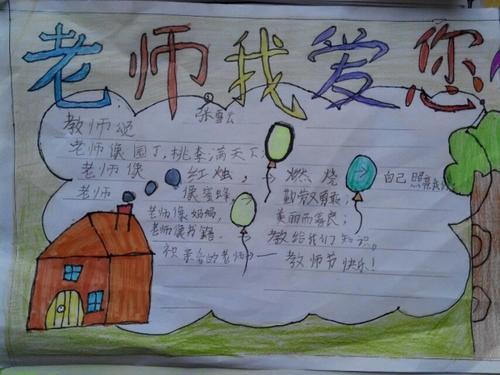 老师我爱您
教师颂 张雪云
老师像园丁,桃李满天下,
老师像红烛,燃烧自己照亮我们,
老师像蜜蜂,勤劳勇敢;
老师像妈妈,美丽而善良;
老师像书籍,教给我们知识。
祝亲爱的老师——教师节快乐!